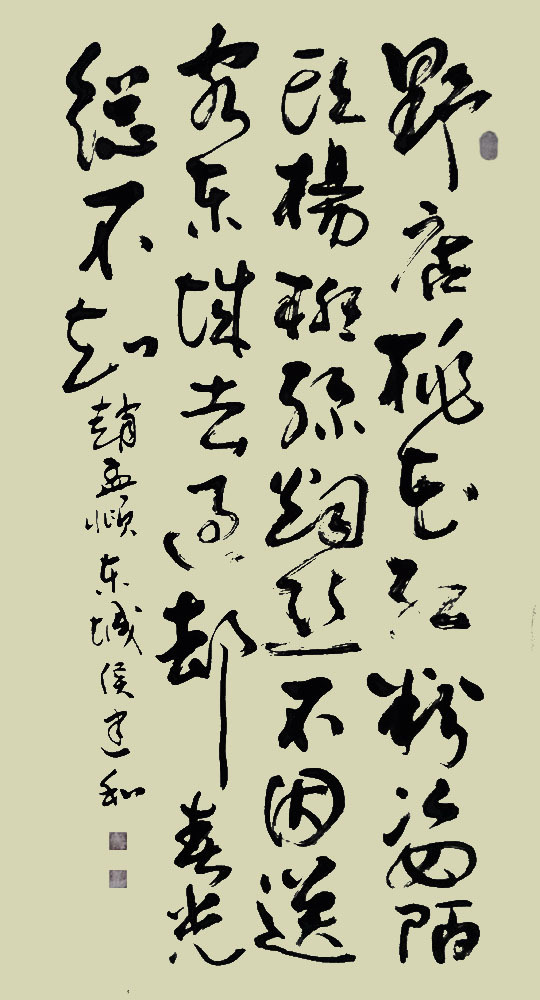 野店桃花红粉姿陌
头楊柳绿烟丝不因送
客东城去过却春光
總不知
趙孟頫东城侯建和